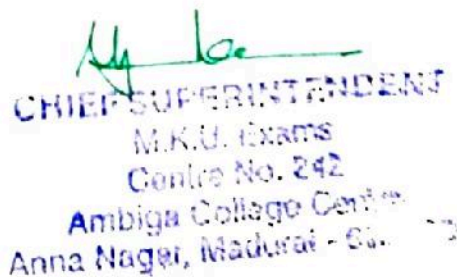 CHIEF SUPERINTENDENT
M.K.U. Exams
Centre No. 242
Ambiga College
Anna Nagar, Madurai -